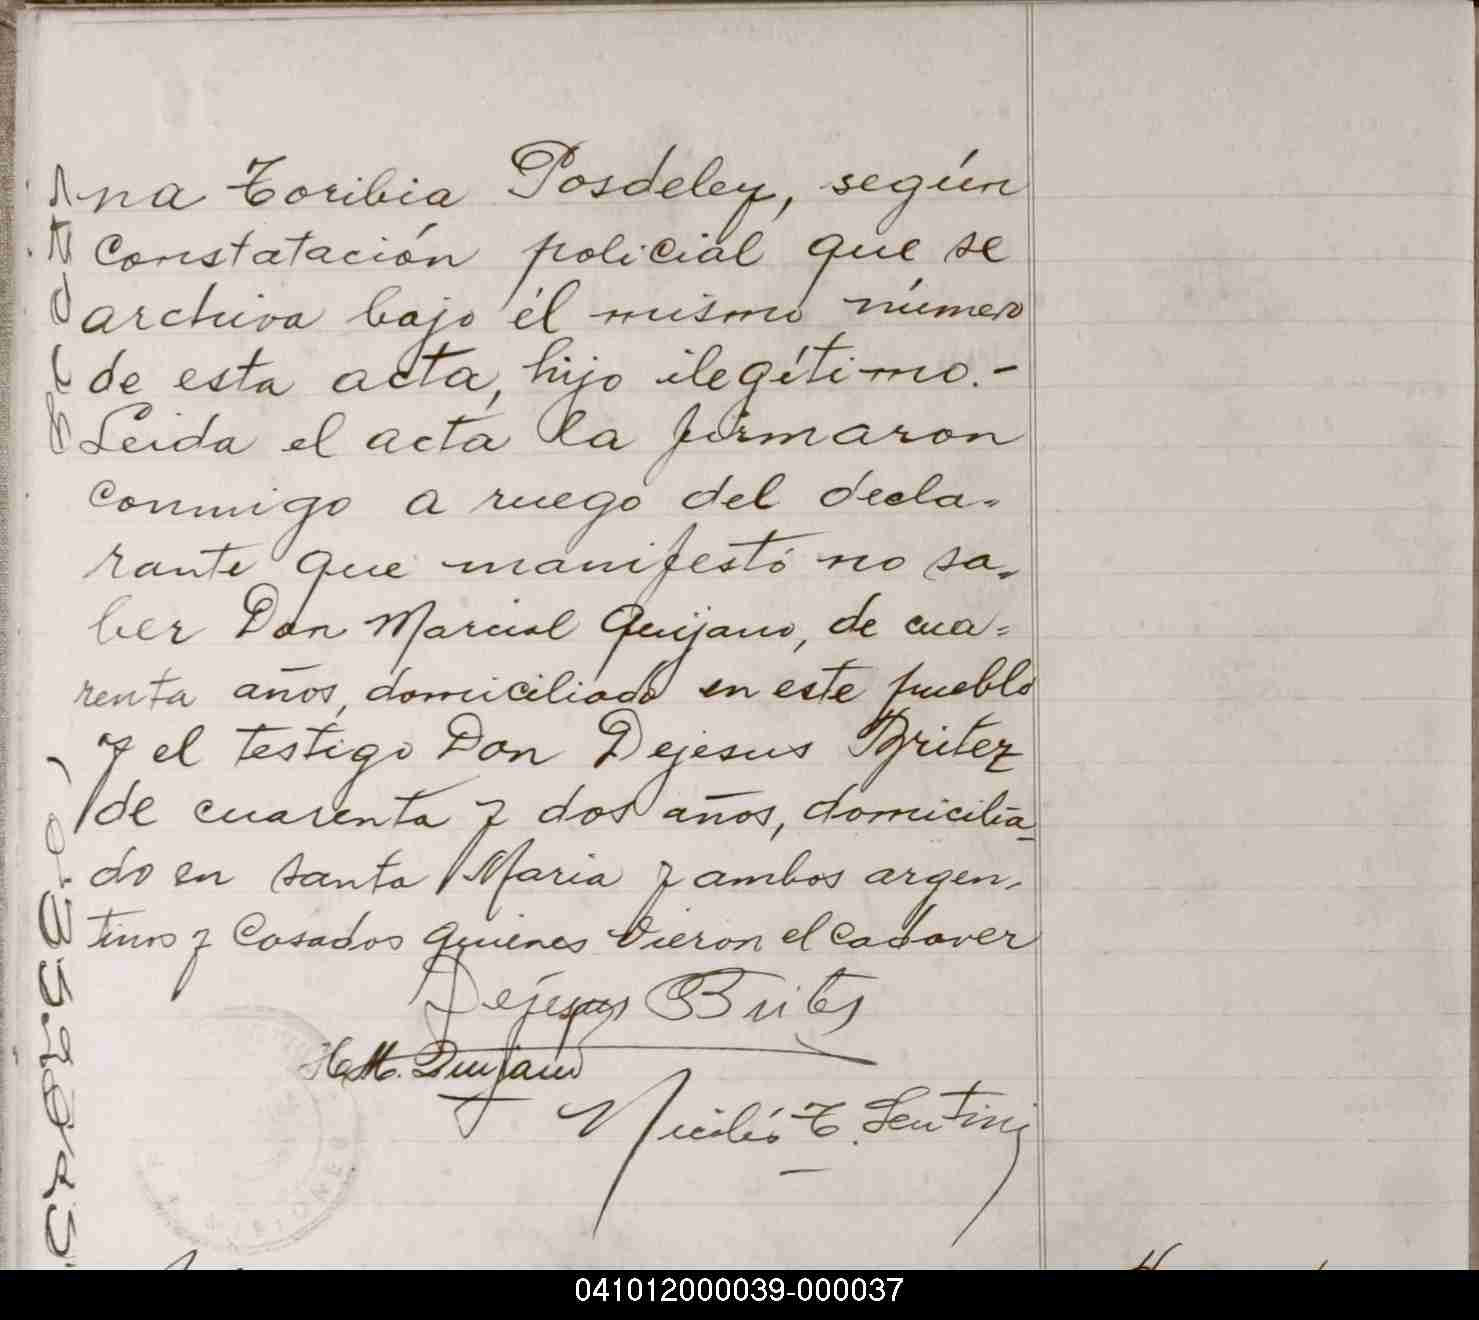 na Toribia Posdeley, según
constatación policial que se
archiva bajo él mismo número
de esta acta, hijo ilegítimo.-
Leida el acta la firmaron
conmigo a ruego del decla=
rante que manifestó no sa=
ber Don Marcial Quijano, de cua=
renta años, domiciliado en este pueblo
y el testigo Don Dejesus Britez
de cuarenta y dos años, domicilia_
do en santa Maria y ambos argen-
tinos y casados quienes vieron el cadaver
Dejesus Brites
M. Quijano
041012000039-000037